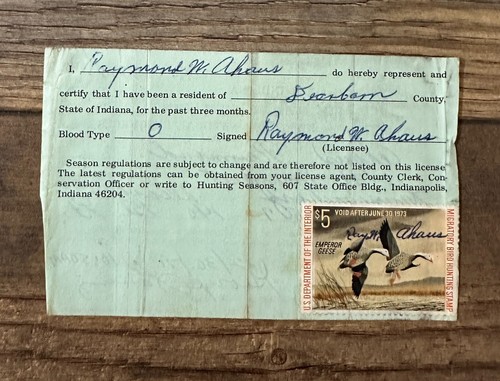 I, Raymond W. Ahaus do hereby represent and
certify that I have been a resident of Dearborn County,
State of Indiana, for the past three months.
Blood Type O Signed Raymond W. Ahaus
(Licensee)
Season regulations are subject to change and are therefore not listed on this license
The latest regulations can be obtained from your license agent, County Clerk, Con-
servation Officer or write to Hunting Seasons, 607 State Office Bldg., Indianapolis,
Indiana 46204.
$5 VOID AFTER JUNE 30, 1973
Ray W. Ahaus
EMPEROR
GEESE
U.S. DEPARTMENT OF THE INTERIOR
MIGRATORY BIRD HUNTING STAMP